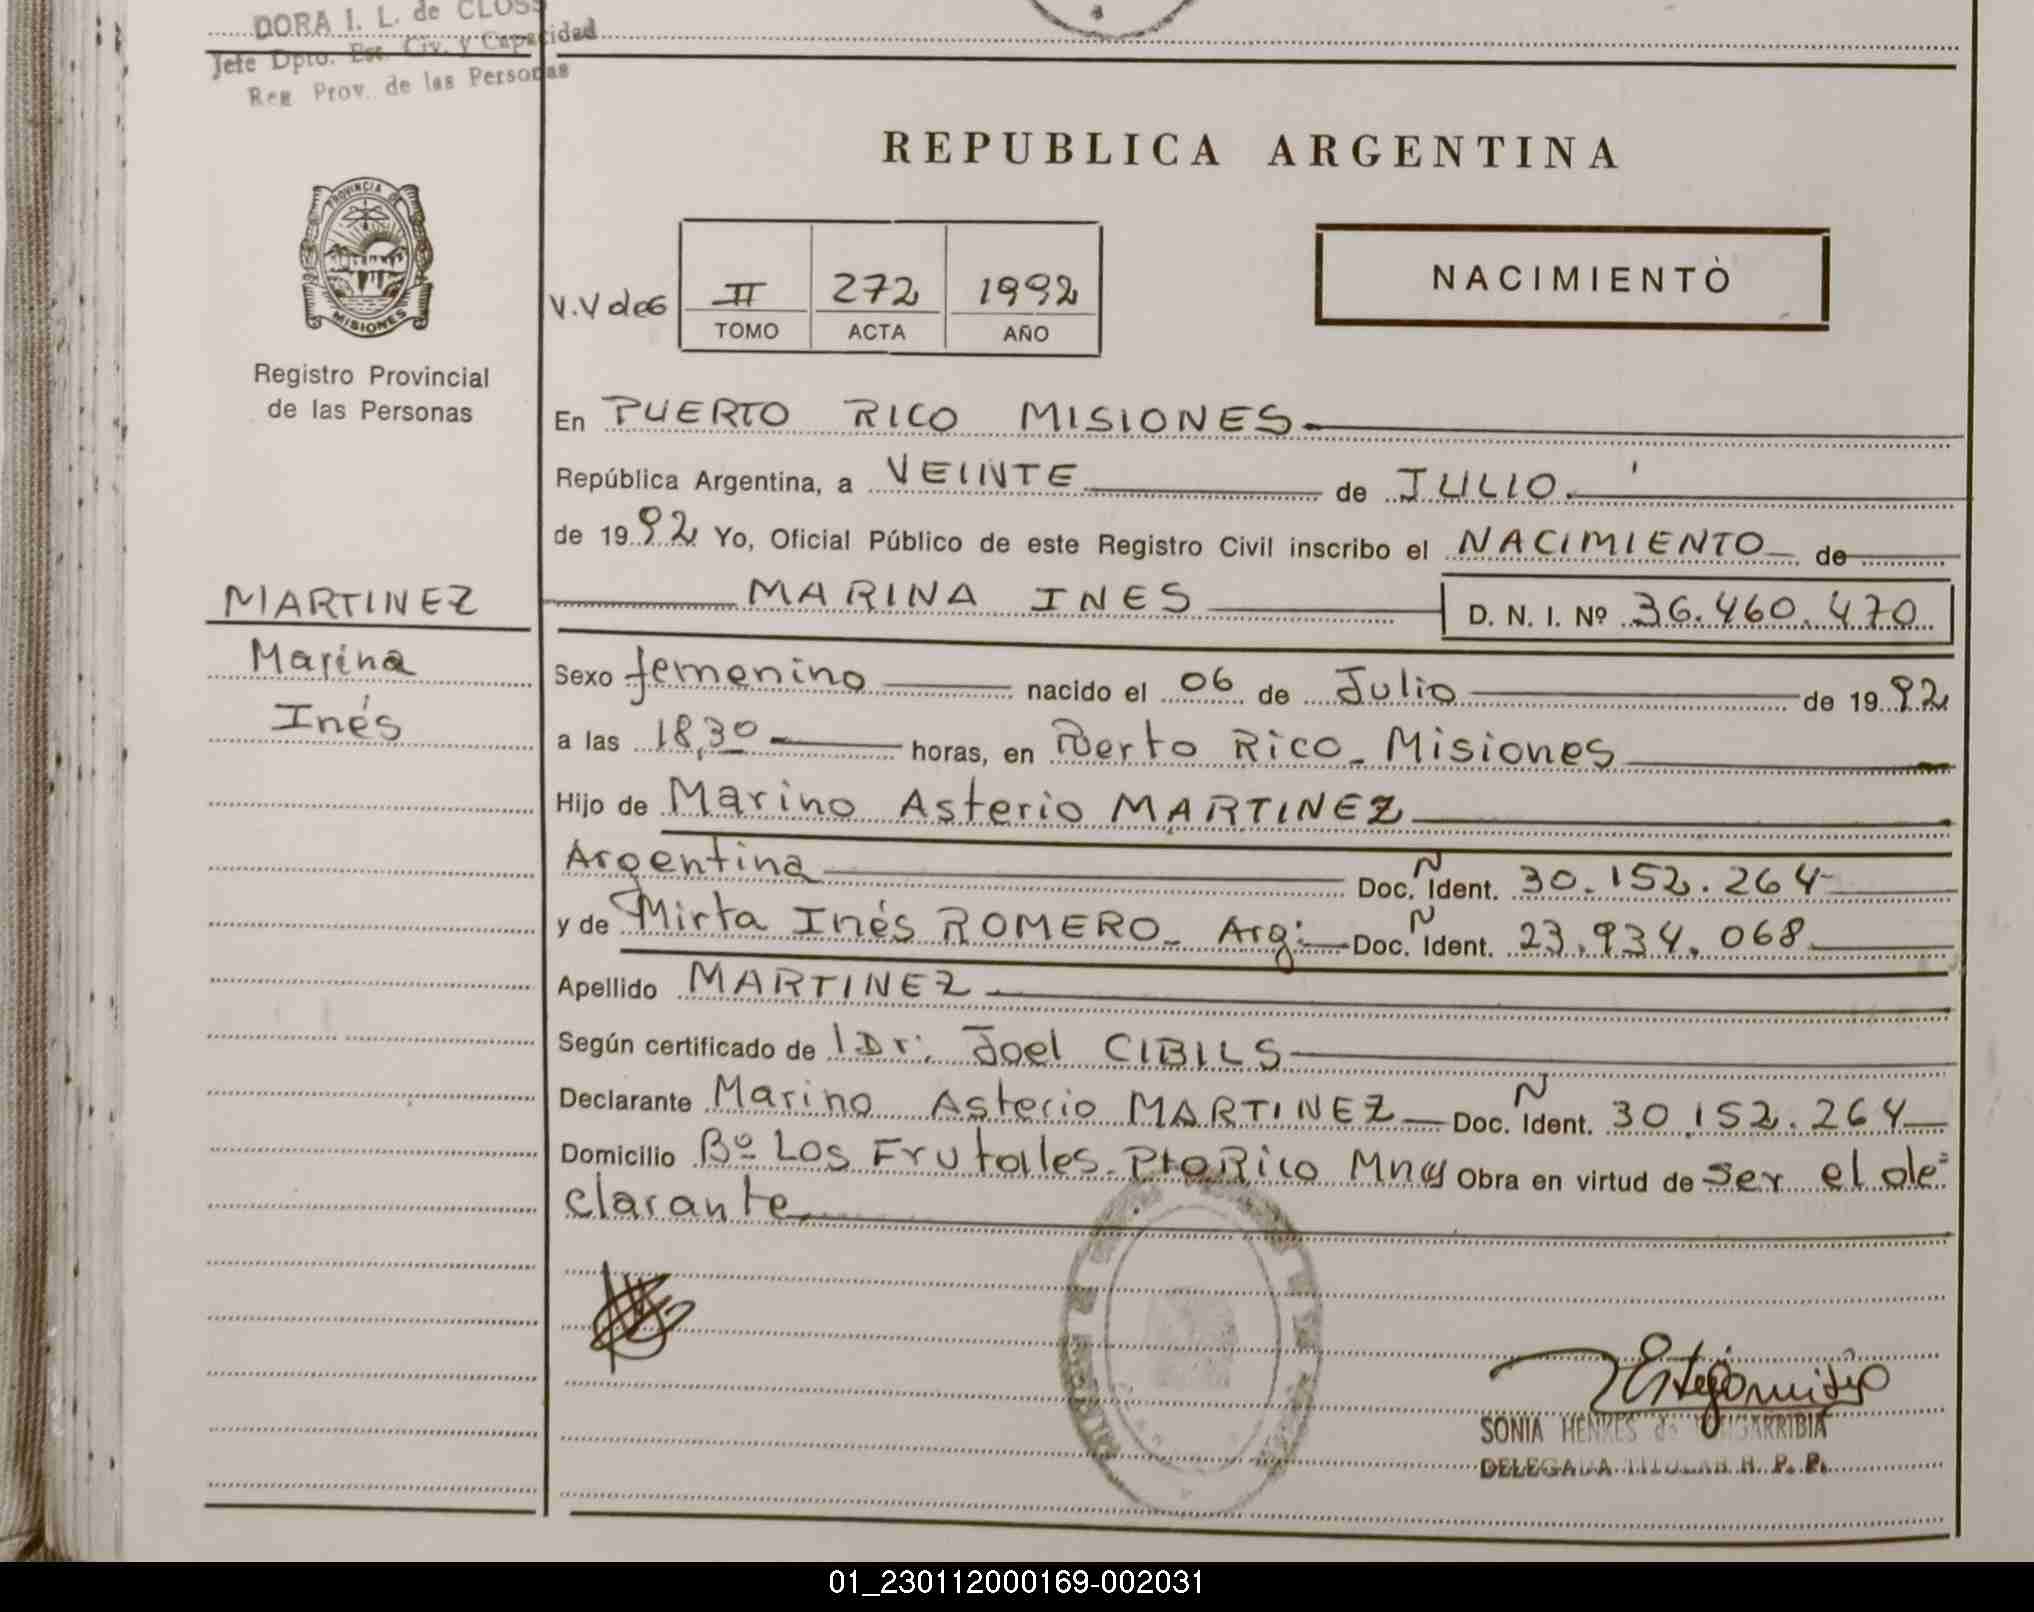 DORA I. L. de CLOSS
Jefe Dpto. Est. Civ. y Capacidad
Reg Prov. de las Personas
PROVINCIA DE
MISIONES
Registro Provincial
de las Personas
MARTINEZ
Marina
Inés
REPUBLICA ARGENTINA
NACIMIENTO
V.V des
II 272 1992
TOMO ACTA AÑO
En PUERTO RICO MISIONES
República Argentina, a VEINTE de JULIO.
de 1992 Yo, Oficial Público de este Registro Civil inscribo el NACIMIENTO de
MARINA INES D. N. I. Nº 36.460.470
Sexo femenino nacido el 06 de Julio de 1992
a las 18,30 horas, en Puerto Rico - Misiones
Hijo de Marino Asterio MARTINEZ
Argentina Doc. Ident. N 30.152.264
y de Mirta Inés ROMERO - Arg: Doc. Ident. N 23.934.068
Apellido MARTINEZ
Según certificado de l Dr. Joel CIBILS
Declarante Marino Asterio MARTINEZ Doc. Ident. N 30.152.264
Domicilio Bº Los Frutales - Pto Rico Mnes Obra en virtud de ser el de=
clarante
SONIA HENKES de
DELEGADA TITULAR R. P. P.
01_230112000169-002031